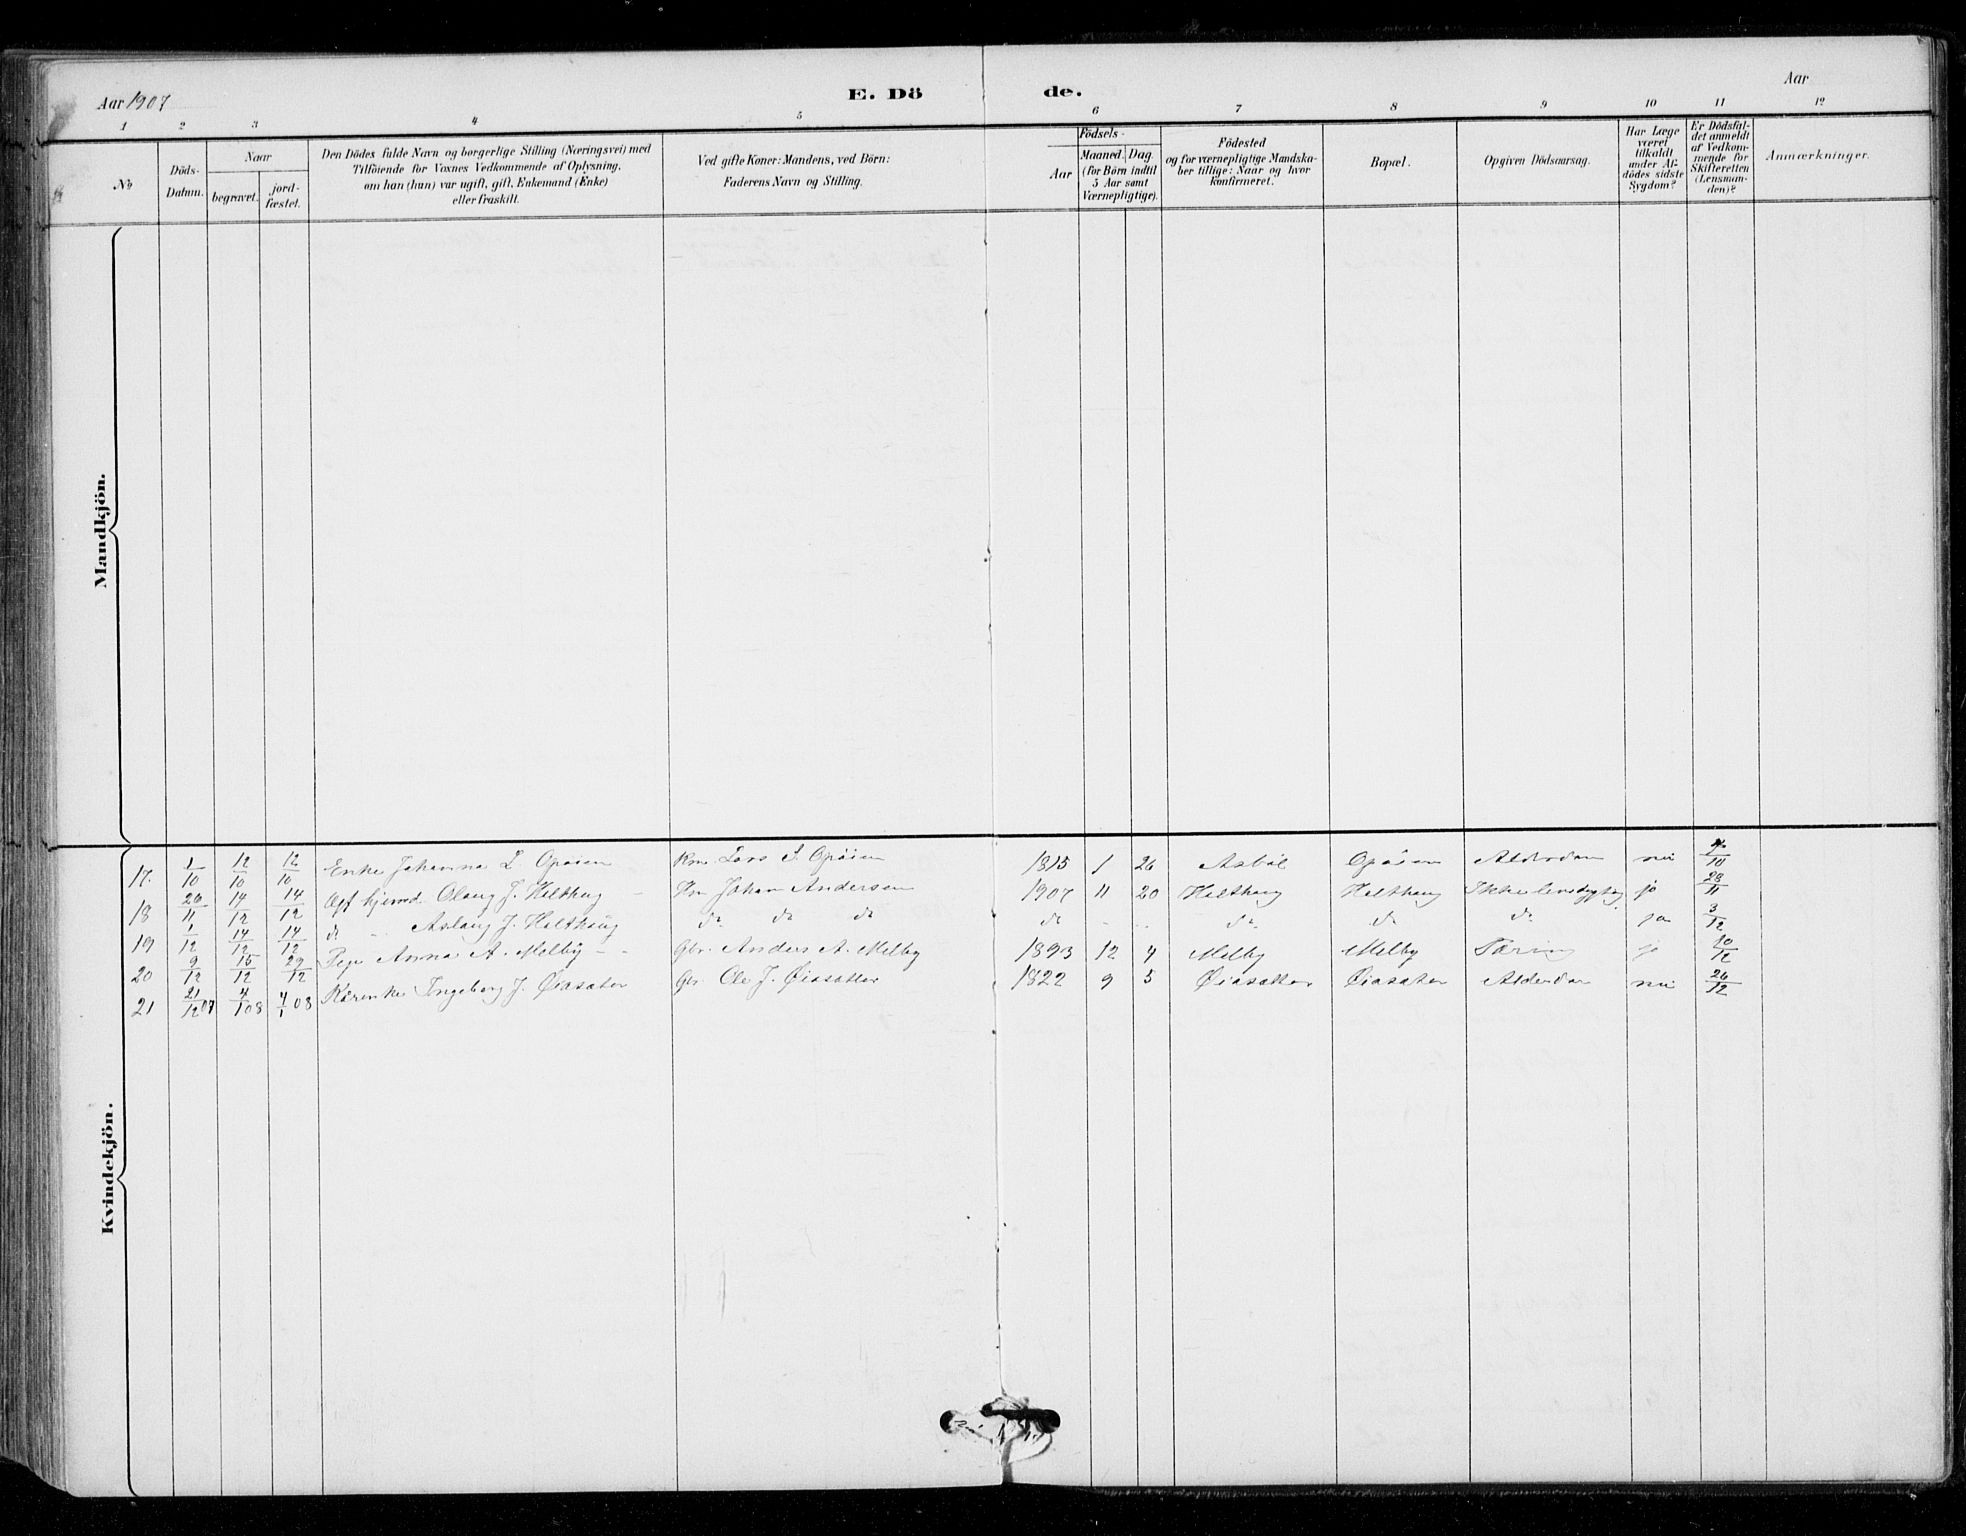 Aar 1907
E. Dö de.
Aar
1 2 3 4 5 6 7 8 9 10 11 12
No
Döds-
Datum.
Naar
begravet.
jord-
fæstet.
Den Dödes fulde Navn og borgerlige Stilling (Næringsvei) med
Tilföiende for Voxnes Vedkommende af Oplysning,
om han (hun) var ugift, gift, Enkemand (Enke)
eller fraskilt.
Ved gifte Koner: Mandens, ved Börn:
Faderens Navn og Stilling.
Födsels-
Aar
Maaned. Dag.
(for Börn indtil
5 Aar samt
Værnepligtige).
Födested
og for værnepligtige Mandska-
ber tillige: Naar og hvor
konfirmeret.
Bopæl.
Opgiven Dödsaarsag.
Har Læge
været
tilkaldt
under Af-
dödes sidste
Sygdom?
Er Dödsfal-
det anmeldt
af Vedkom-
mende for
Skifteretten
(Lensman-
den)?
Anmærkninger.
Mandkjön.
Kvindekjön.
17. 1/10 12/10 12/10 Enke Johanna L. Opöien Lars Opöien 1815 1 26 Asböl Opöien Alderdom nei /10
18 26/11 14/12 14/12 hjemd. Olaug J. Holthaug Johan Andersen 1907 11 20 Holthaug Holthaug Ikke levedygtig ja 28/11
19 1/12 14/12 14/12 do Aslaug J. Holthaug do do do do do do do ja 3/12
20 9/12 15/12 29/12 Pige Anna A. Melby Gbr. Anders A. Melby 1893 12 4 Melby Melby Tæring ja 10/12
21 21/12 07 4/1 08 4/1 08 Kårenke Ingeborg J. Øiasæter Gbr. Ole J. Øiasætter 1822 9 5 Øiasætter Øiasæter Alderdom nei 26/12